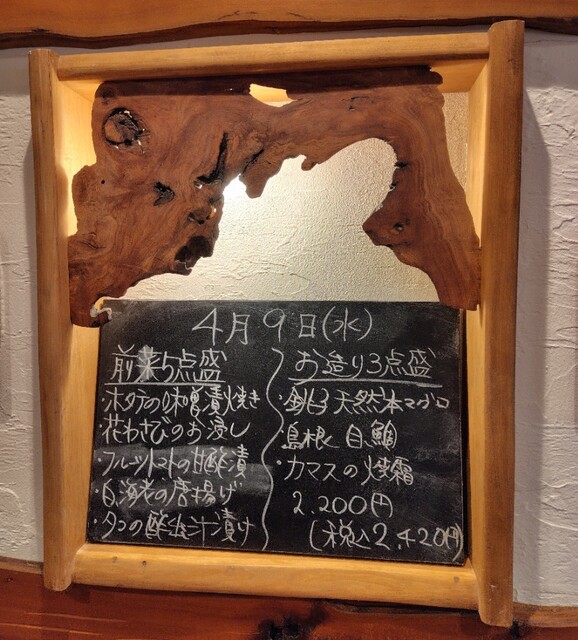 4月9日(水)
前菜5点盛
・ホタテの味噌漬焼き
・花わさびのお浸し
・フルーツトマトの甘酢漬
・白海老の唐揚げ
・タコの酢生汁漬け
お造り3点盛
・銚子天然本マグロ
・島根
・カマスの焼霜
2,200円
(税込2,420円)